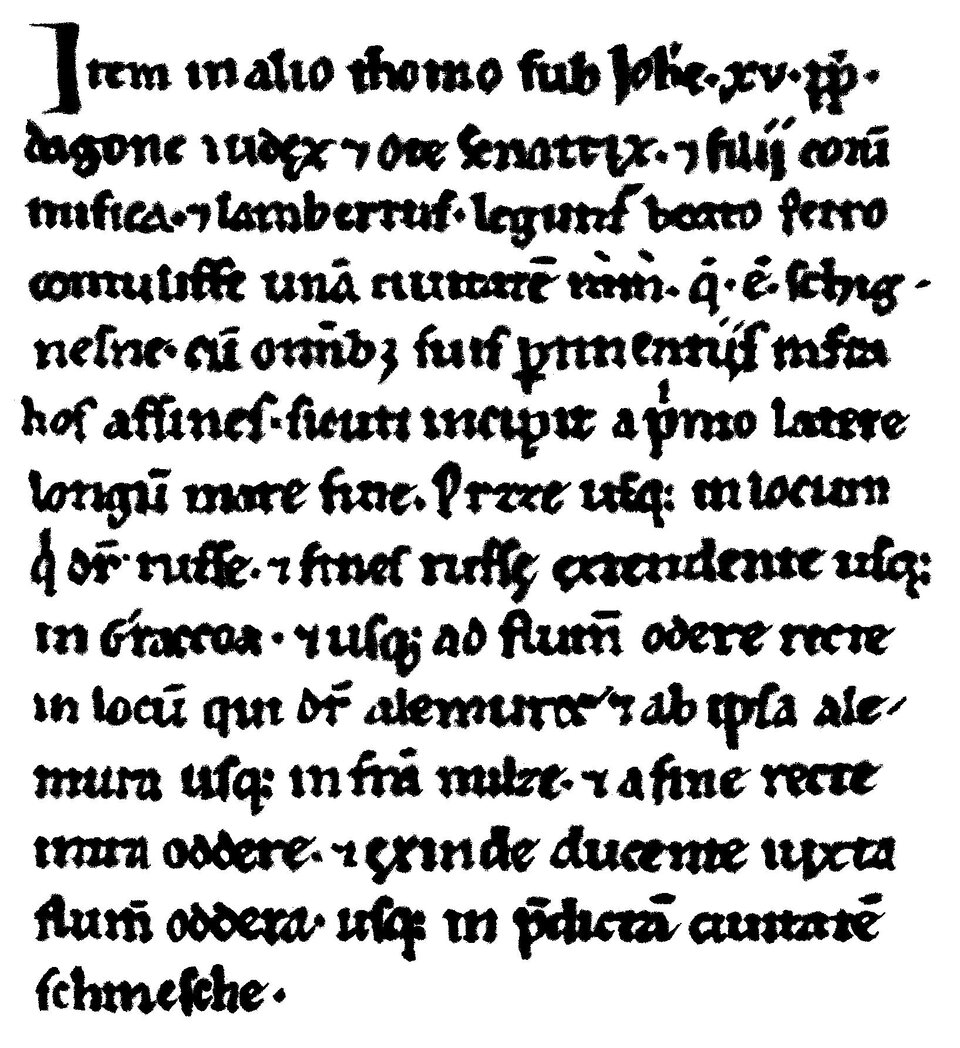 Item in alio thomo sub Joh̅e. xv. pp̅.
dagone iudęx ⁊ Ote senatrix. ⁊ filíí coni̅
misica. ⁊ lambertus. leguns beato petro
contulisse una̅ ciuitate̅ in in. q̅. e̅. schig-
nesne. cu̅ omib; suis ꝑtinentíís infra
hos affines. sicuti incipit a pͥmo latere
longu̅ mare fine. Przze usq: in locum
qͥ dr̅. russe. ⁊ fines russę ęxtendente usq:
in Graccoa. ⁊ usq; ad flum̅ odere recte
in locu̅ qui dr̅ alemura ⁊ ab ipsa ale-
mura usq: in fra̅ milze. ⁊ a fine recte
intra oddere. ⁊ ęxinde ducente iuxta
flum̅ oddera. usq: in p̅dicta̅ ciuitate̅
schinesche.